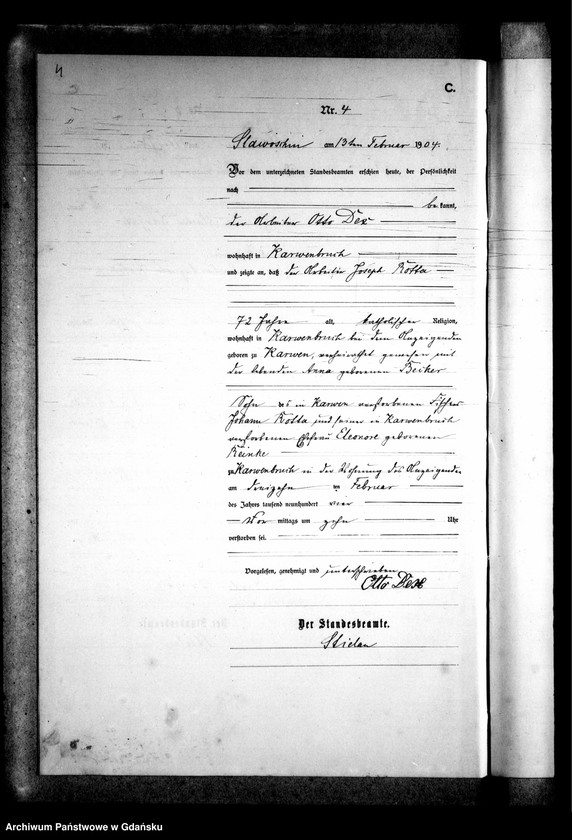 4
C.
Nr. 4
Slawoschin am 13ten Februar 1904.
Vor dem unterzeichneten Standesbeamten erschien heute, der Persönlichkeit
nach
bekannt,
der Arbeiter Otto Dex
wohnhaft in Karwenbruch
und zeigte an, daß der Arbeiter Joseph Kotta
72 Jahre alt, katholischer Religion,
wohnhaft in Karwenbruch bei dem Anzeigenden
geboren zu Karwen, verheirathet gewesen mit
der lebenden Anna geborenen
Sohn des in Karwen verstorbenen Fischers
Johann Kotta und seiner in Karwenbruch
verstorbenen Ehefrau Eleonore geborenen
Reinke
zu Karwenbruch in der Wohnung des Anzeigenden
am dreizehn ten Februar
des Jahres tausend neunhundert vier
Vor mittags um zehn Uhr
verstorben sei.
Vorgelesen, genehmigt und unterschrieben
Otto Dex
Der Standesbeamte.
Archiwum Państwowe w Gdańsku